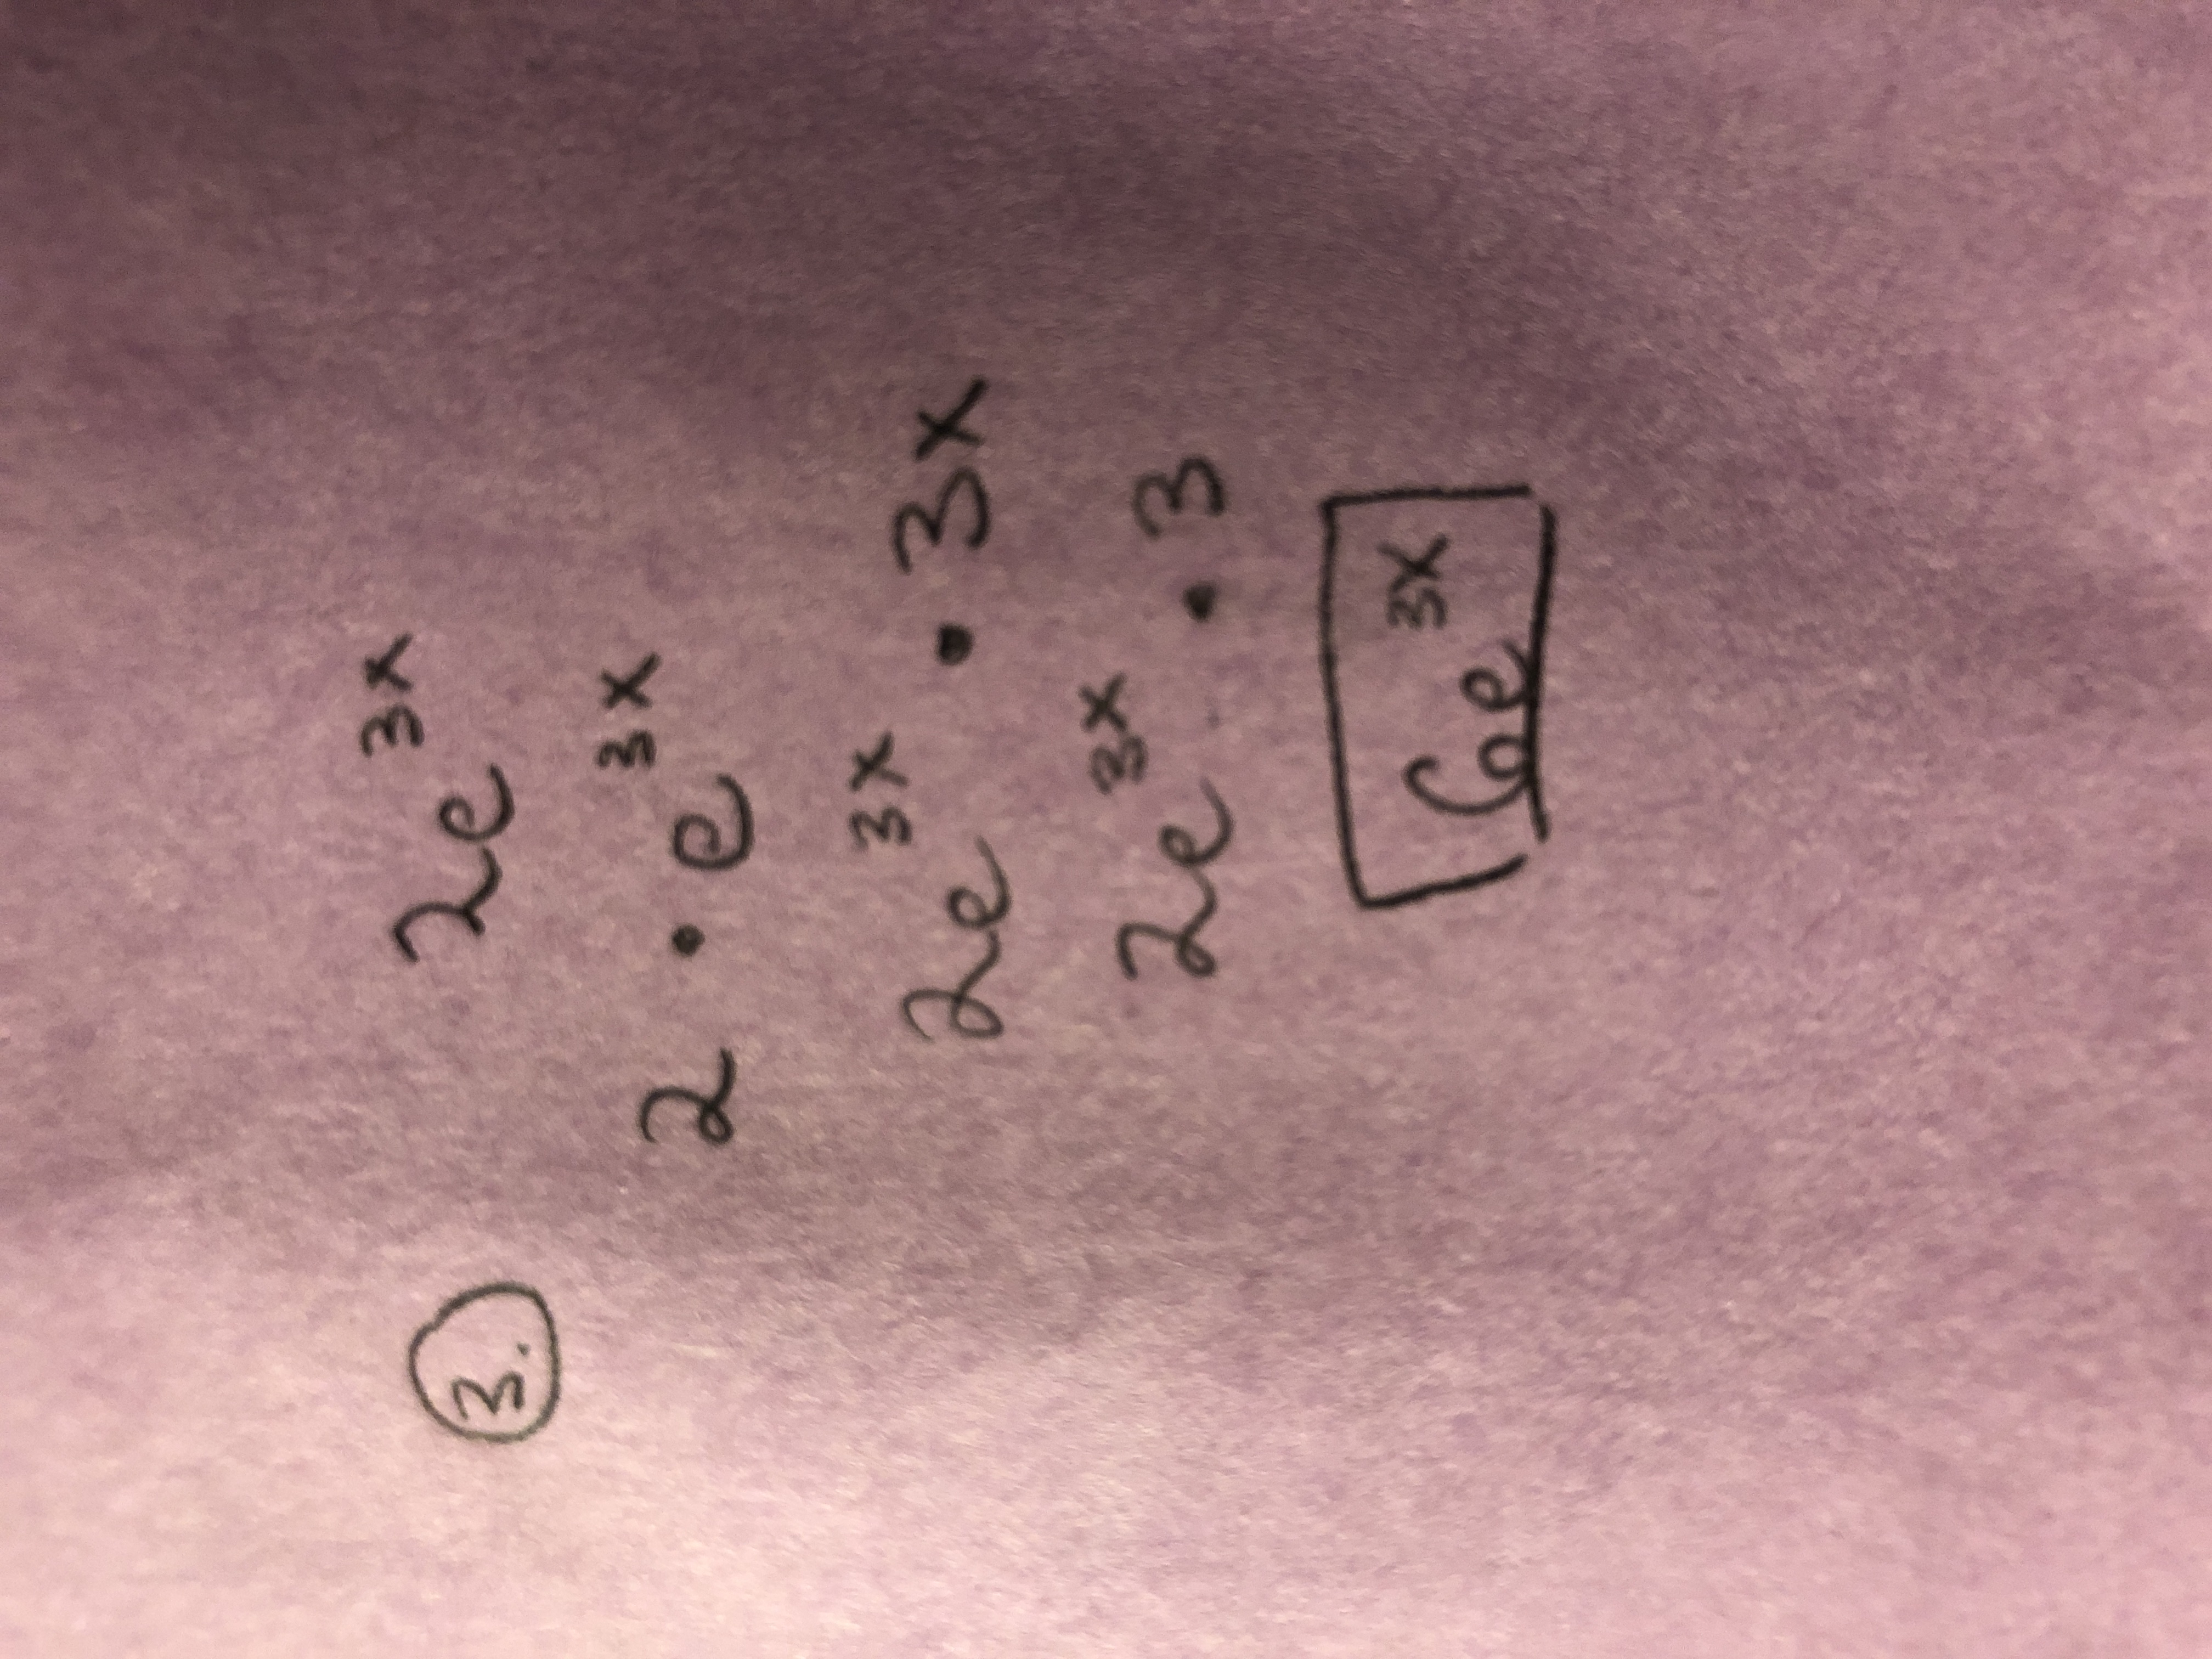 3. 2e^3x
2 · e^3x
2e^3x · 3x
2e^3x · 3
6e^3x